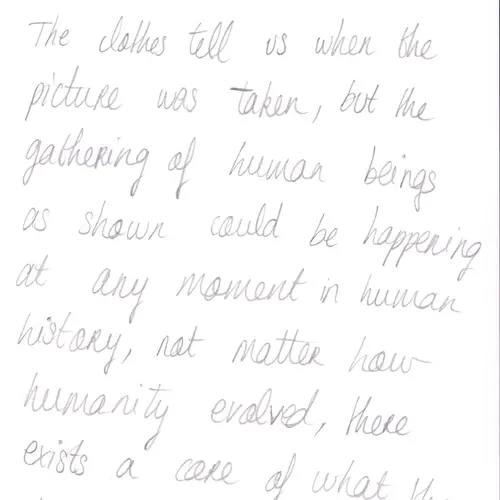 The clothes tell us when the
picture was taken, but the
gathering of human beings
as shown could be happening
at any moment in human
history, not matter how
humanity evolved, there
exists a core of what